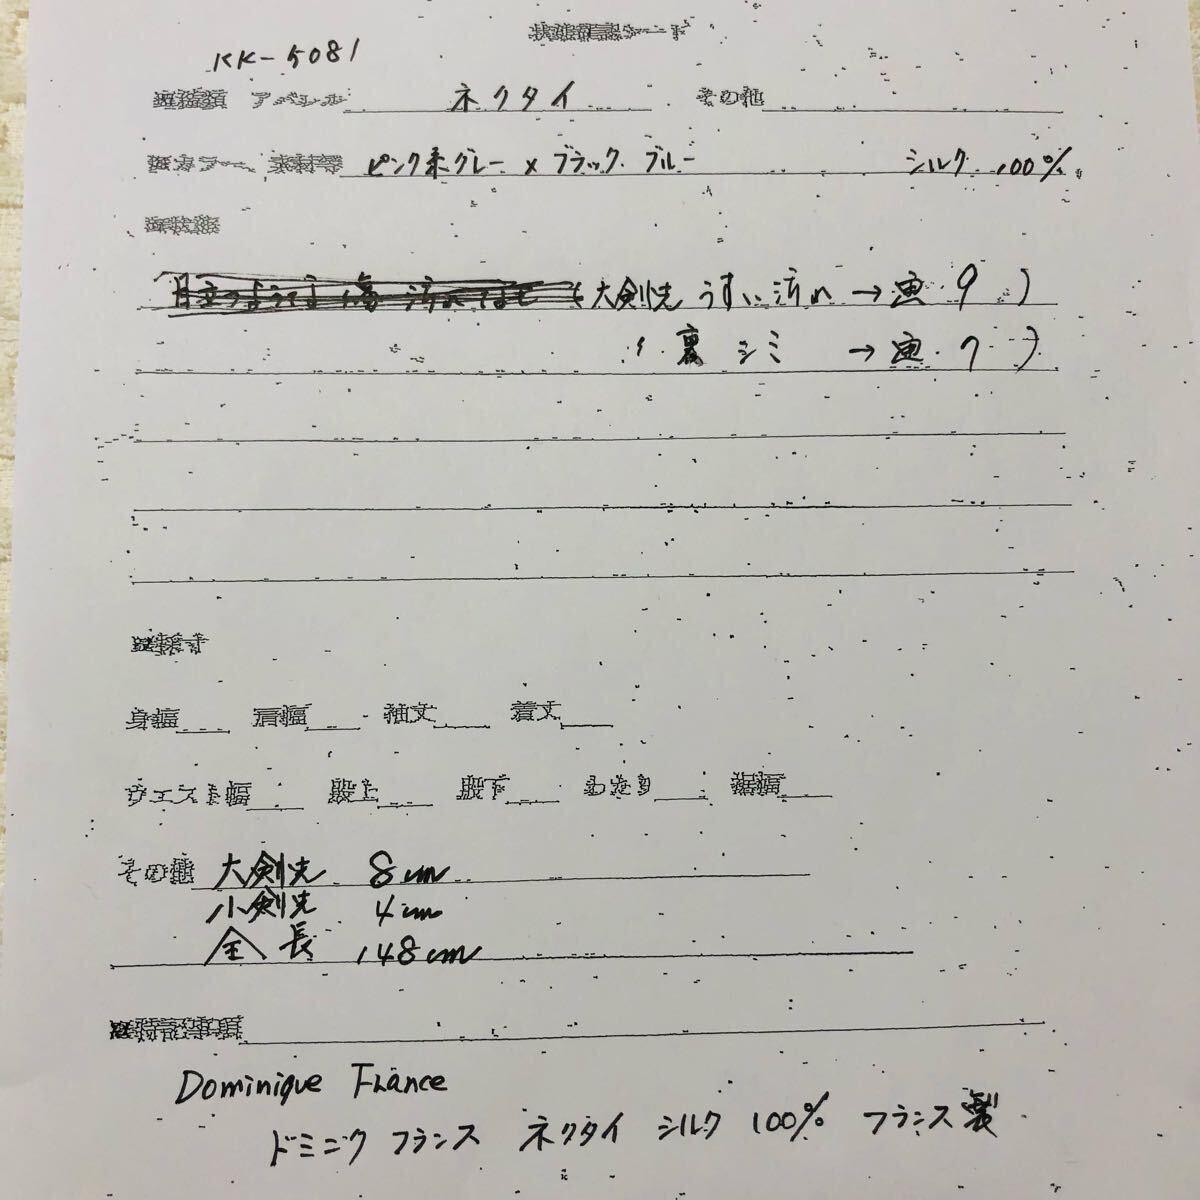 状態確認シート
KK-5081
アパレル ネクタイ その他
カラー 素材等 ピンク系グレー × ブラック. ブルー シルク 100%
大剣先 うすい汚れ → 画. 9 )
〃. 裏 シミ → 画. 7 )
身幅 肩幅 袖丈 着丈
ウエスト幅 股上 股下 わたり 裾幅
その他 大剣先 8cm
小剣先 4cm
全長 148cm
特記事項
Dominique France
ドミニク フランス ネクタイ シルク 100% フランス製